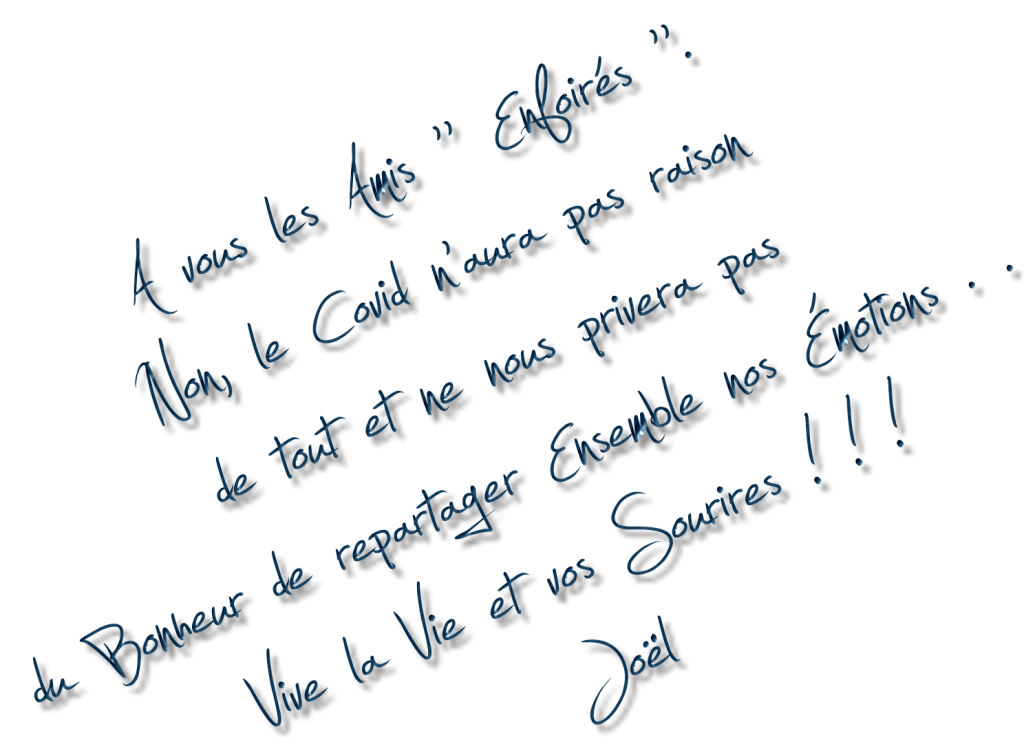 A vous les Amis " Enfoirés ".
Non, le Covid n'aura pas raison
de tout et ne nous privera pas
du Bonheur de repartager Ensemble nos Émotions . .
Vive la Vie et vos Sourires ! ! !
Joël